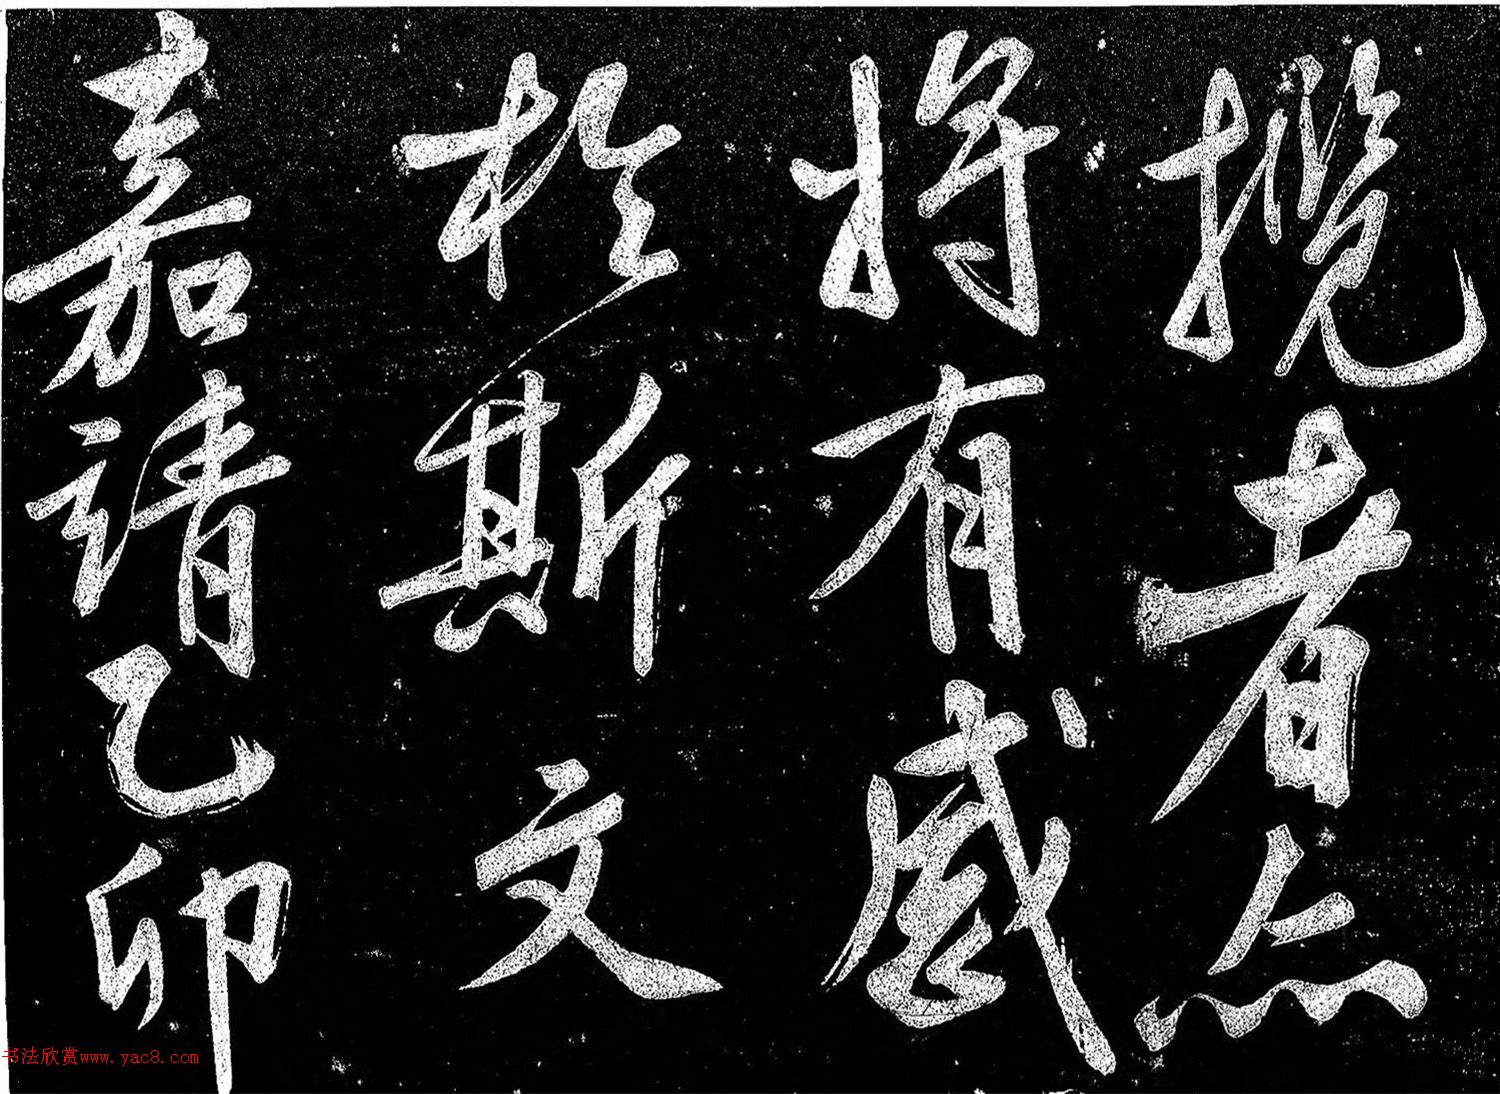 攬者亦
將有感
於斯文
嘉靖乙卯
书法欣赏www.yac8.com